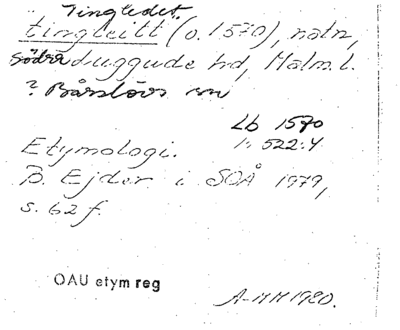 " Tingledet.
tingleitt (o. 1570), natn,
Södra Luggude hd, Malm. l.
? Bårslövs sn
Lb 1570
1: 522:4
Etymologi.
B. Ejder i SOÅ 1979,
s. 62 f.
OAU etym reg
A-MM 1980.